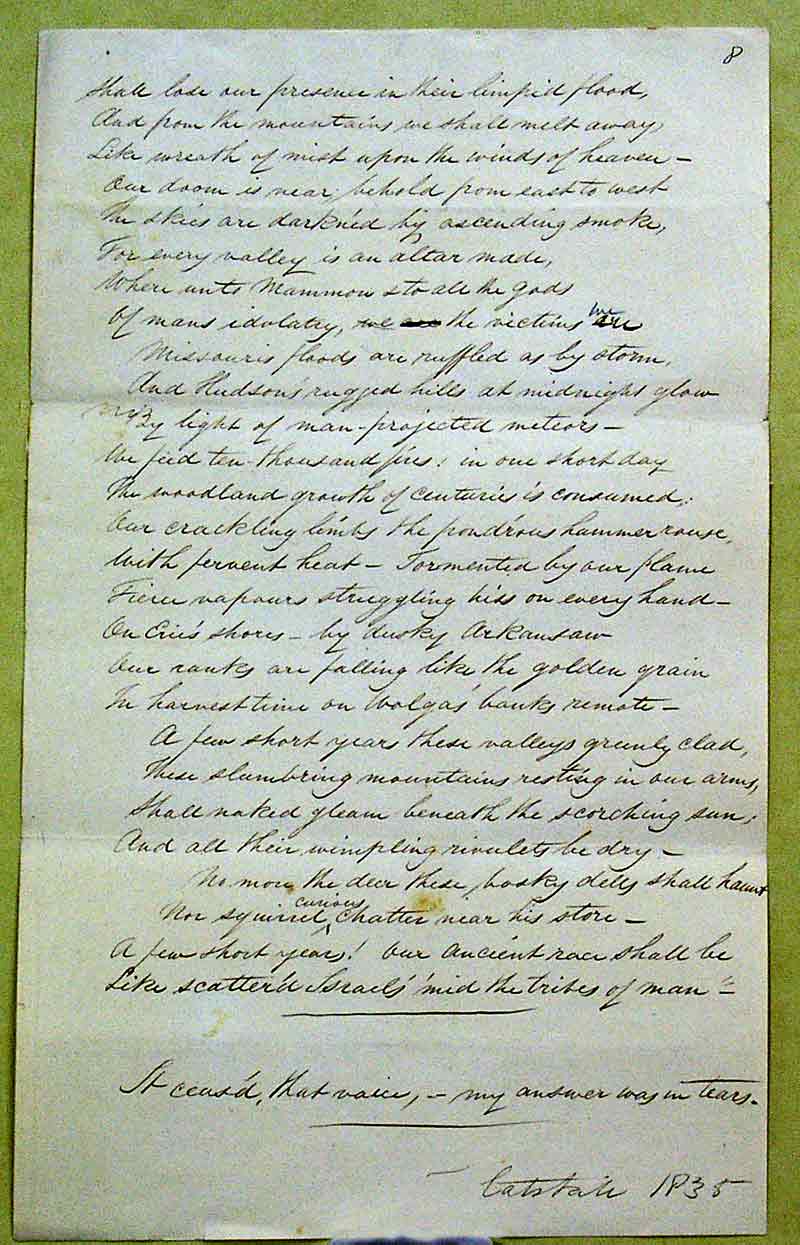 8
Shall lose our presence in their limpid flood,
And from the mountains we shall melt away,
Like wreath of mist upon the winds of heaven –
Our doom is near; behold from east to west
The skies are dark'ned by ascending smoke,
For every valley is an altar made,
Where unto Mammon & to all the gods
Of mans idolatry, we are the victims we are
Missouris floods are ruffled as by storm,
And Hudson's rugged hills at midnight glow
By light of man-projected meteors –
We feed ten-thousand fires! in one short day
The woodland growth of centuries is consumed;
Our crackling limbs the pond'rous hammer rouse,
With fervent heat – Tormented by our flame
Fierce vapours struggling hiss on every hand –
On Erie's shores – by dusky Arkansaw
Our ranks are falling like the golden grain
In harvest time on Wolga's banks remote –
A few short years these valleys greenly clad,
These slumbring mountains resting in our arms,
Shall naked gleam beneath the scorching sun;
And all their wimpling rivulets be dry –
No more the deer these bosky dells shall haunt
Nor squirrel curious chatter near his store –
A few short years! Our ancient race shall be
Like scatter'd Israel's 'mid the tribes of man" –
It ceas'd, that voice, – my answer was in tears.
– Catskill 1835